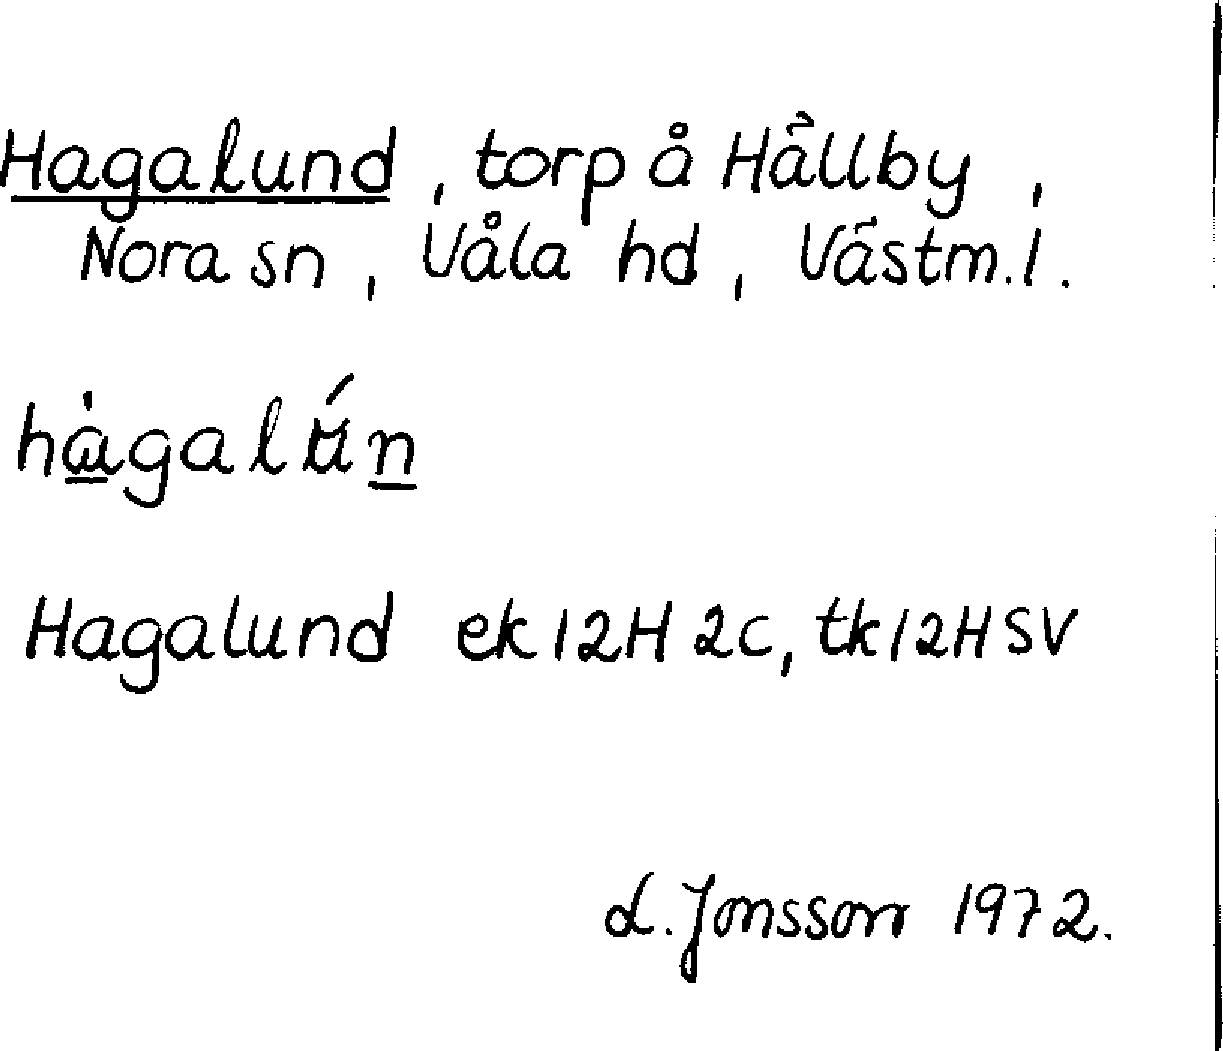 Hagalund, torp å Hållby,
Nora sn, Våla hd, Västm. l.
hàgalún
Hagalund ek 12H 2c, tk 12H SV
L. Jonsson 1972.